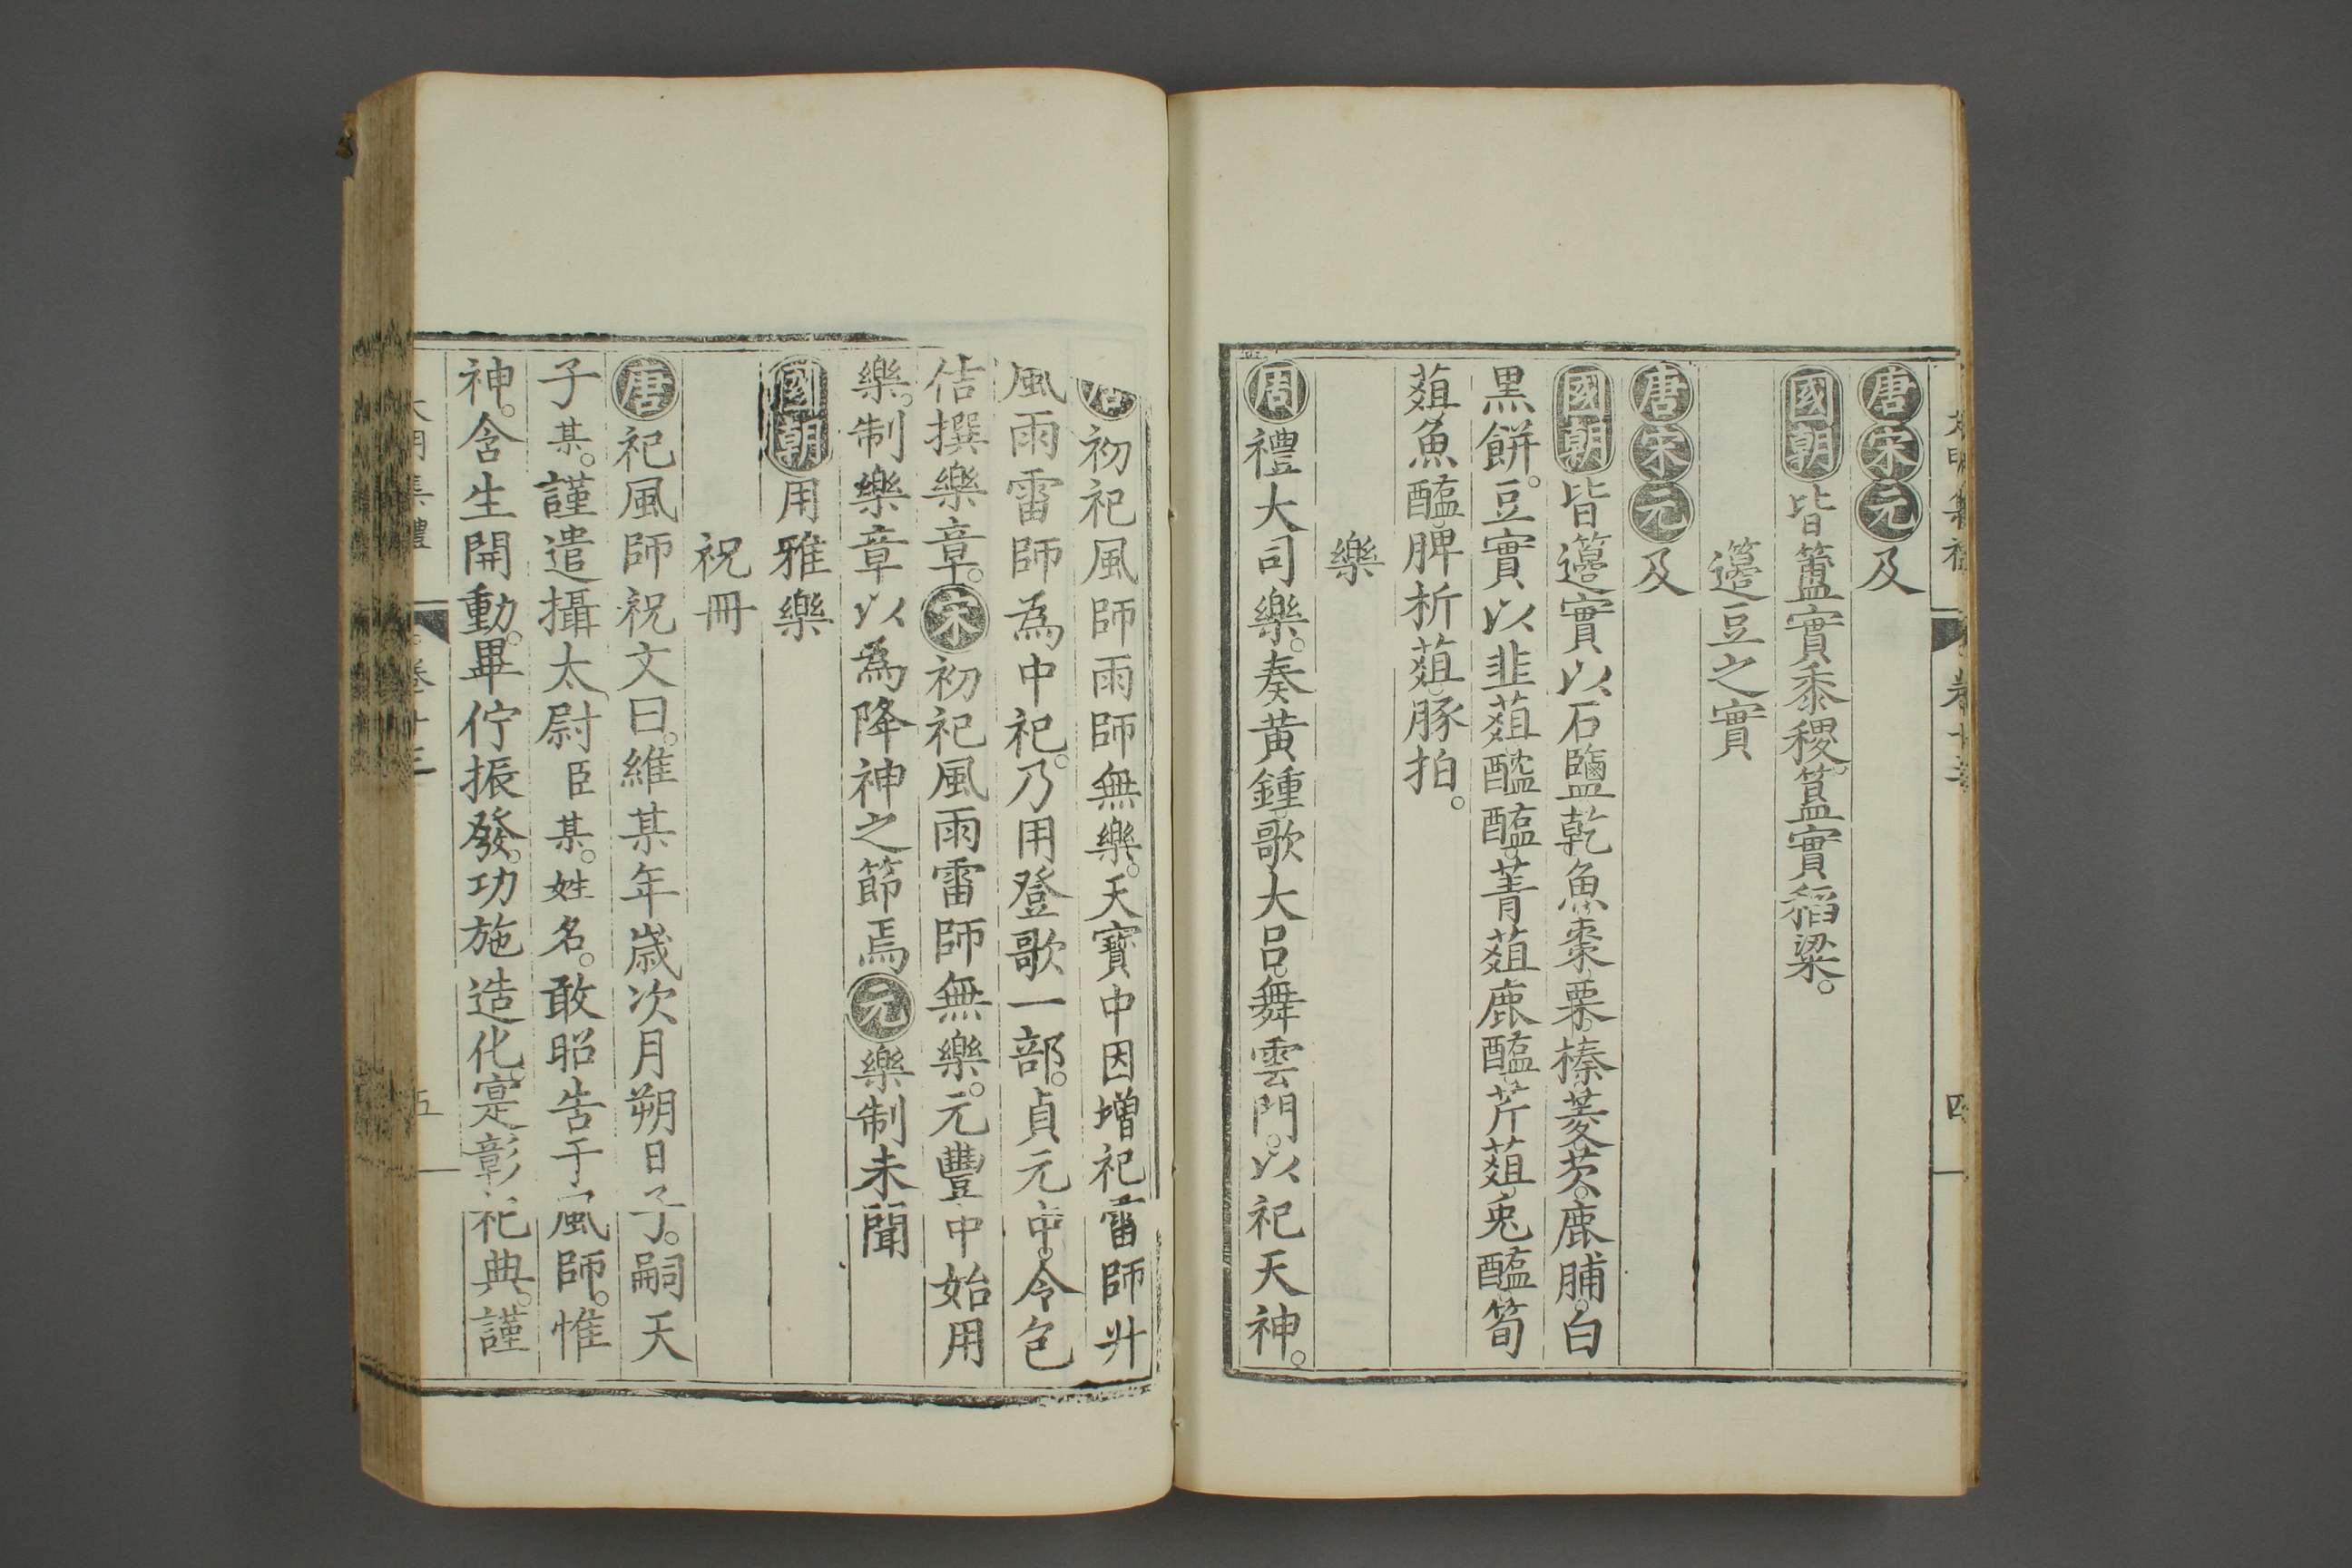 唐宋元及
國朝皆簠實黍稷。簋實稻粱。
籩豆之實
唐宋元及
國朝皆籩實以石鹽乾魚棗栗榛菱芡鹿脯。白
黒餅。豆實以韭葅醓醢菁葅鹿醢芹葅兎醢筍
葅魚醢脾析葅豚拍。
樂
周禮大司樂。奏黃鍾歌大呂舞雲門。以祀天神。
初祀風師雨師無樂。天寳中因增祀雷師升
風雨雷師為中祀。乃用登歌一部。貞元中。令包
佶撰樂章。宋初祀風雨雷師無樂。元豐中始用
樂。制樂章以為降神之節焉元樂制未聞
國朝用雅樂
祝冊
唐祀風師祝文曰。維某年歲次月朔日子。嗣天
子某。謹遣攝太尉臣某。姓名。敢昭告于風師。惟
神。含生開動。畢佇振發。功施造化。寔彰祀典。謹
大明集禮 卷十三 五